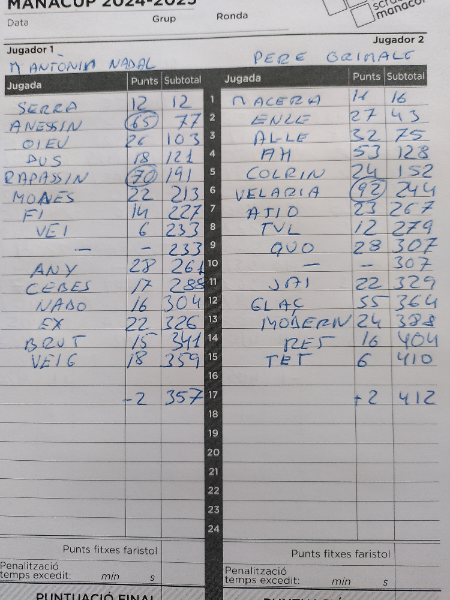 MANACUP 2024-2025
Data Grup Ronda
Jugador 1 Jugador 2
M ANTÒNIA NADAL PERE GRIMALT
Jugada Punts Subtotal Jugada Punts Subtotal
SERRA 12 12 1 MACERA 16 16
ANESSIN 65 77 2 ENZE 27 43
OIEU 26 103 3 ALLE 32 75
PUS 18 121 4 AH 53 128
RAPASSIN 70 191 5 COLRIN 24 152
MONES 22 213 6 VELARIA 92 244
FI 14 227 7 ATIO 23 267
VEI 6 233 8 TUL 12 279
— - 233 9 QUO 28 307
ANY 28 261 10 — - 307
CEBES 17 288 11 JAI 22 329
NABO 16 304 12 GLAÇ 55 364
EX 22 326 13 MODERN 24 388
BRUT 15 341 14 RES 16 404
VEIG 18 359 15 TET 6 410
16
-2 357 17 +2 412
18
19
20
21
22
23
24
Punts fitxes faristol Punts fitxes faristol
Penalització Penalització
temps excedit: min s temps excedit: min s
PUNTUACIÓ FINAL